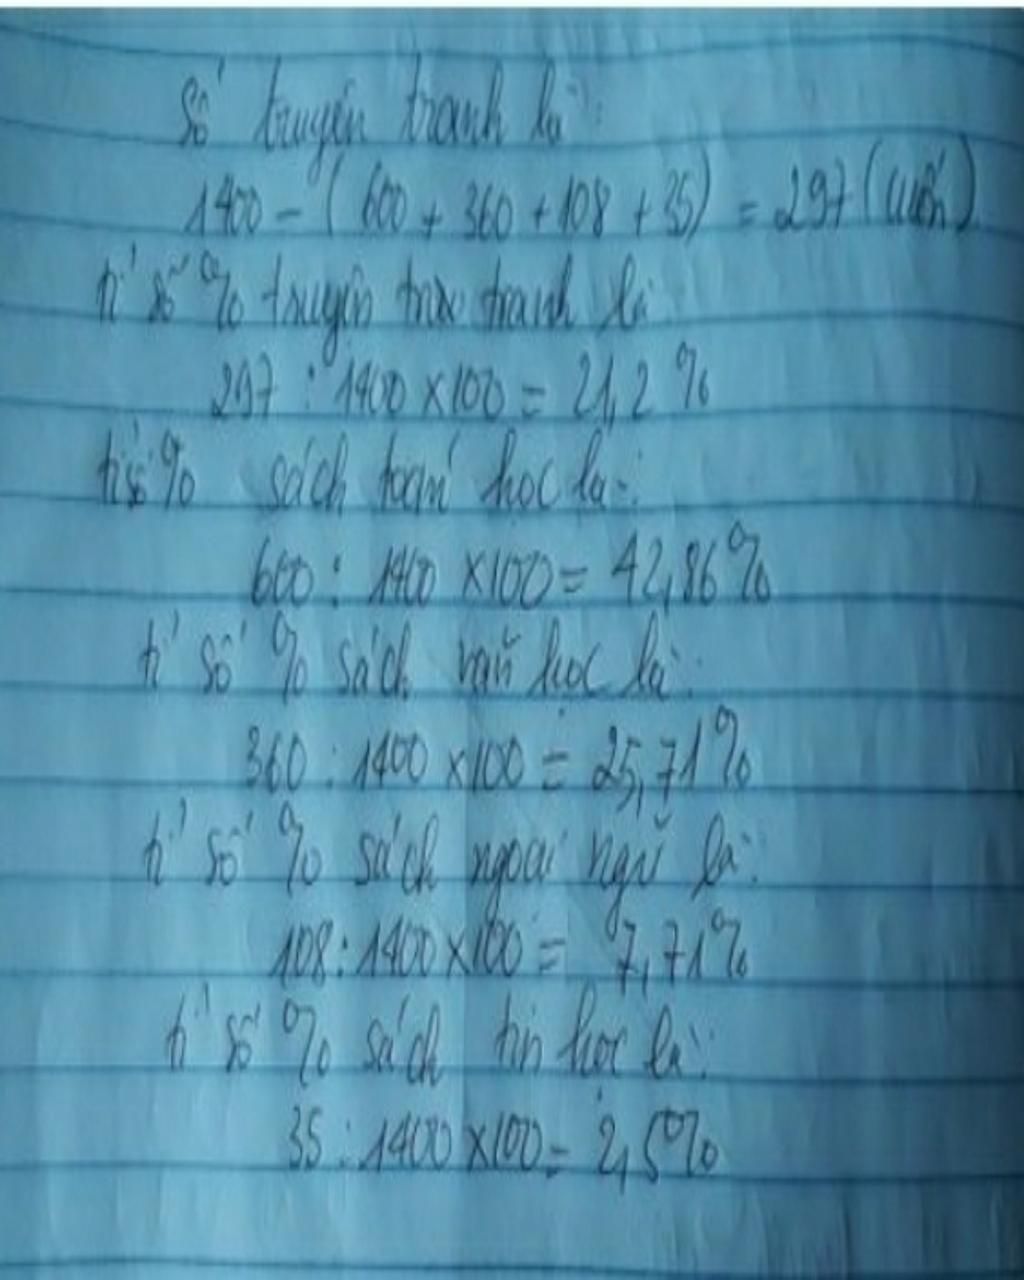 Số truyện tranh là:
1400 - ( 600 + 360 + 108 + 35) = 297 (cuốn)
tỉ số % truyện tranh là:
297 : 1400 x 100 = 21,2 %
tỉ số % sách toán học là:
600 : 1400 x100 = 42,86%
tỉ số % sách văn học là:
360 : 1400 x 100 = 25,71%
tỉ số % sách ngoại ngữ là:
108 : 1400 x 100 = 7,71%
tỉ số % sách tin học là:
35 : 1400 x 100 = 2,5%